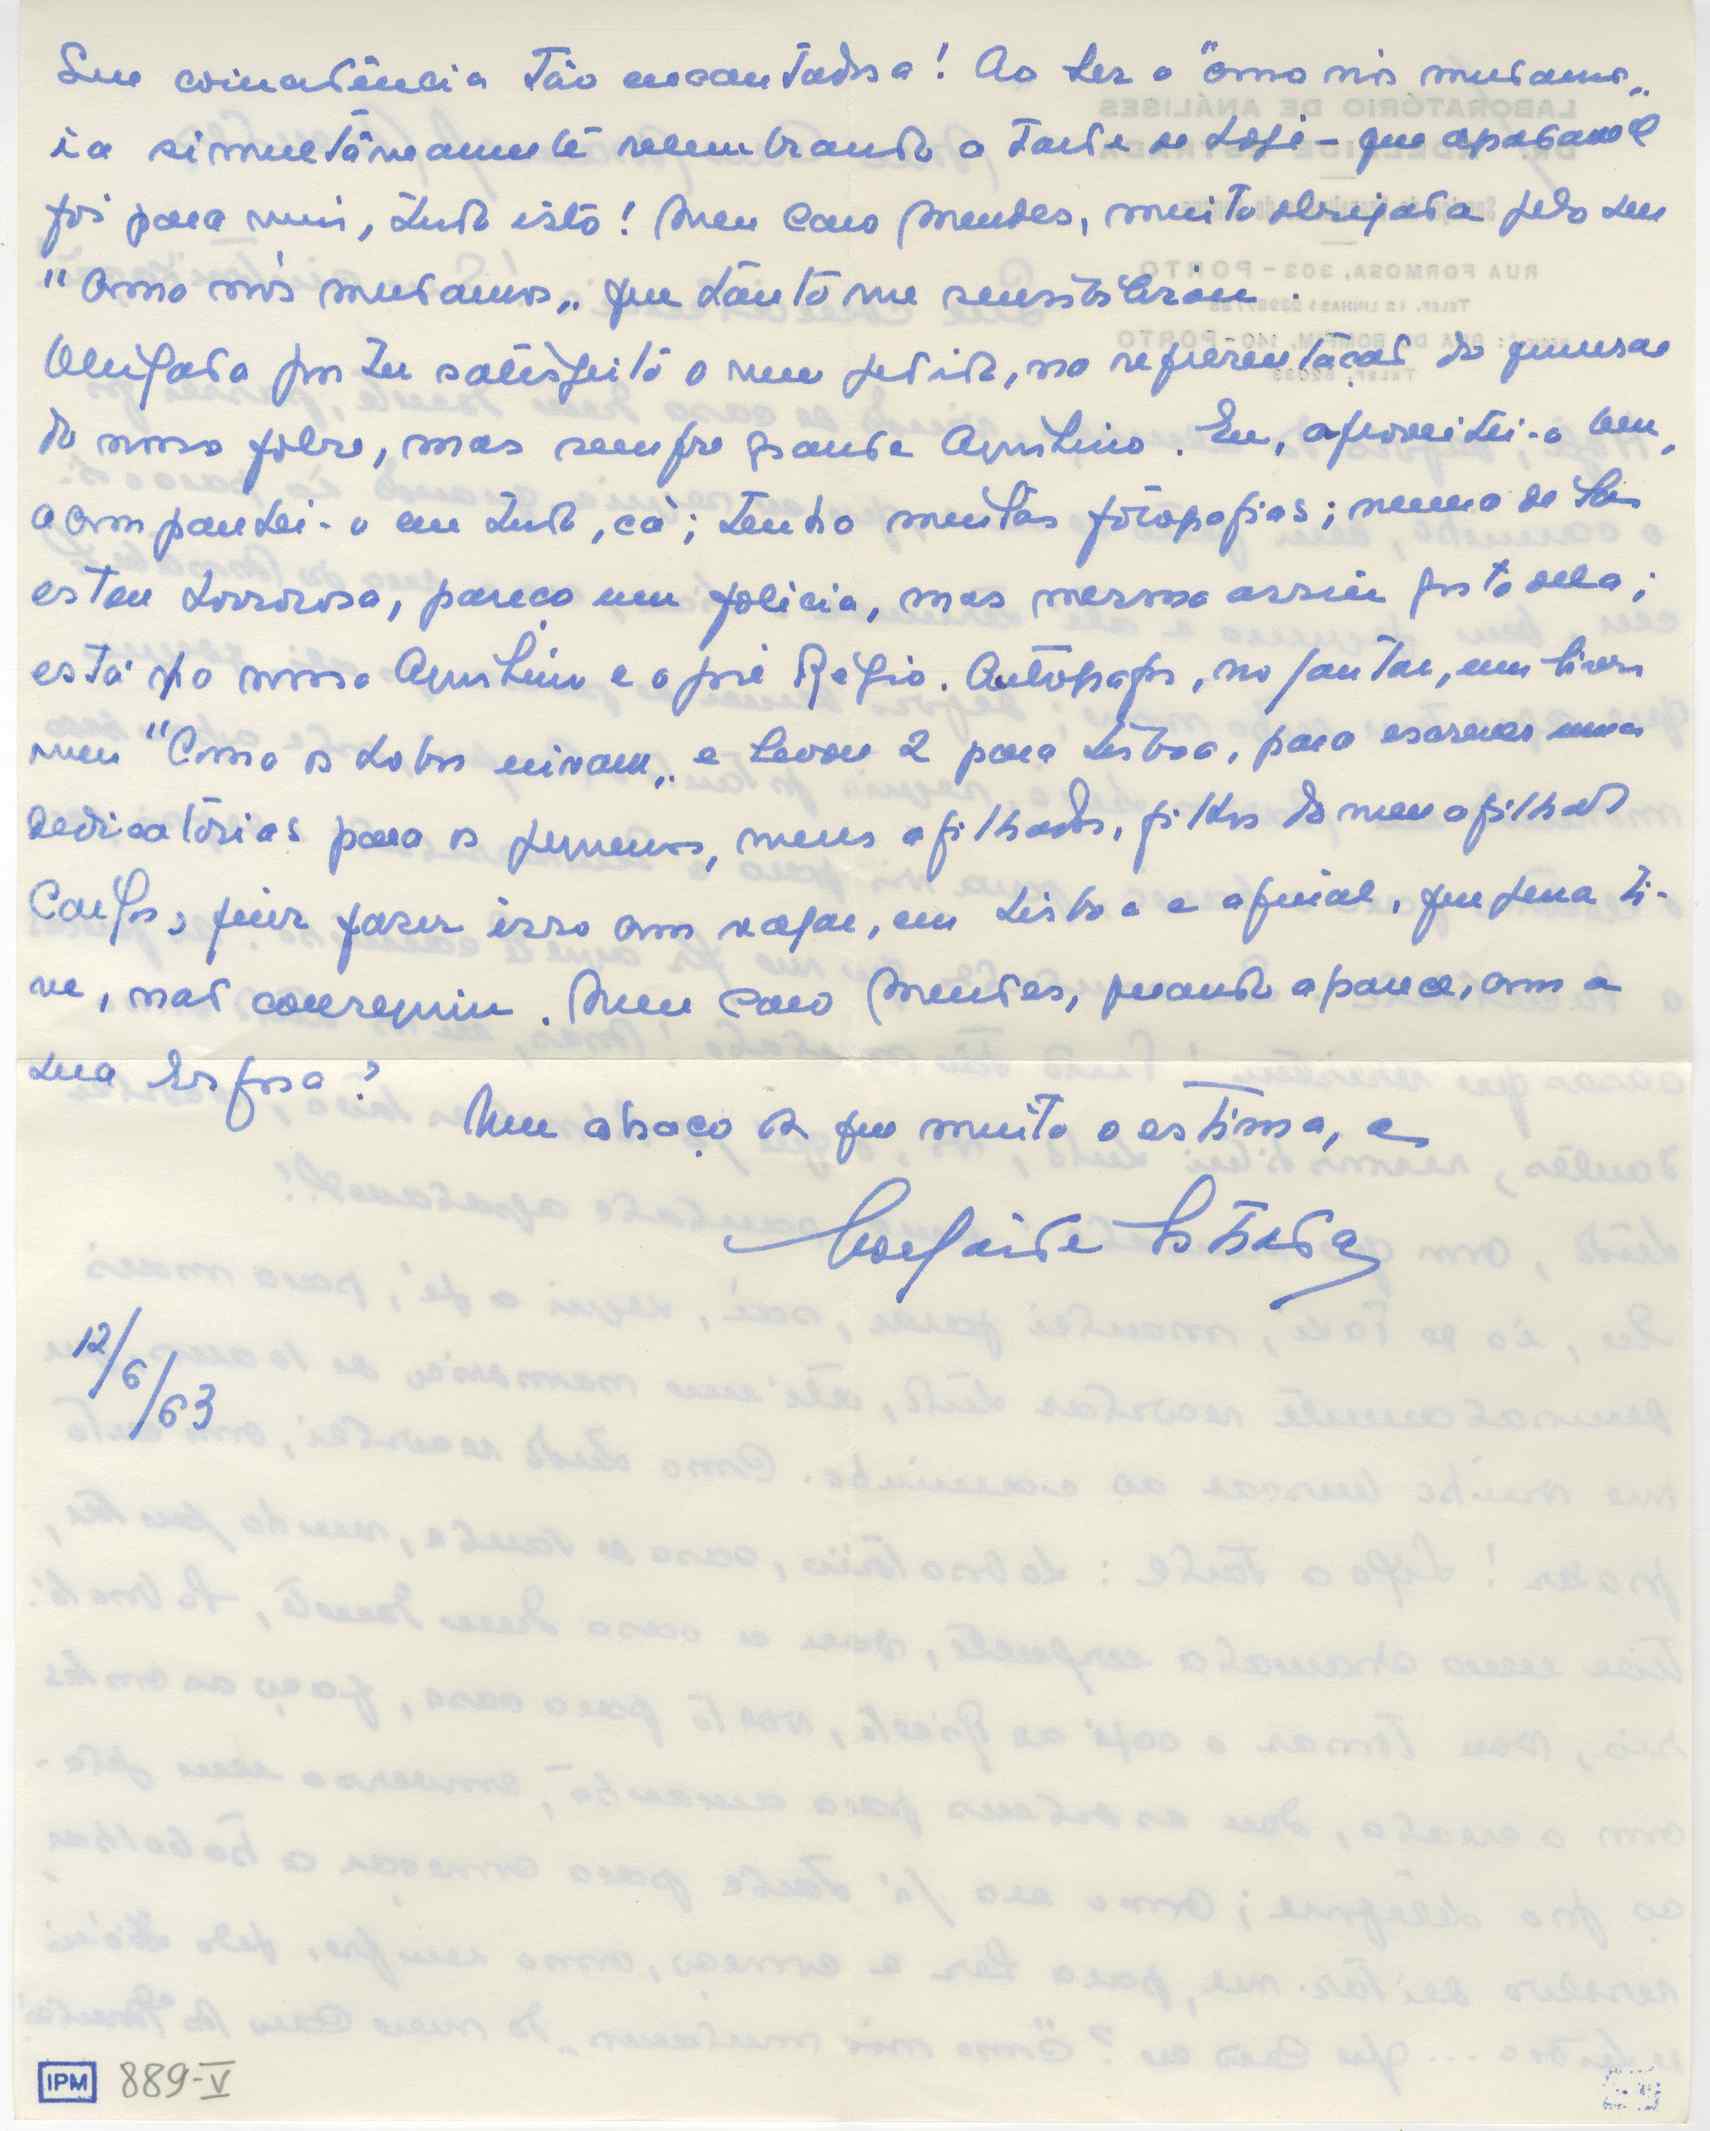 Que coincidência tão encantadora! Ao ler o "Como nós mudamos"
ia simultâneamente relembrando a tarde de hoje – que agradável
foi para mim, tudo isto! Meu caro Mendes, muito obrigada pelo seu
"Como nós mudamos" que tanto me sensibilizou.
Obrigada por ter satisfeito o meu pedido, na representação do
do nosso pobre, mas sempre grande Aquilino. Eu, aproveitei-o bem,
acompanhei-o em tudo, cá; tenho muitas fotografias; numa delas
estou horrorosa, pareço um polícia, mas mesmo assim gosto dela;
está lá o nosso Aquilino e o José Régio. Autografou, no jantar, um livro
meu "Como os lobos uivam" e levou 2 para Lisboa, para escrever umas
dedicatórias para os pequenos, meus afilhados, filhos do meu afilhado
Carlos, quiz fazer isso com vagar, em Lisboa e afinal, que pena ti-
ve, não conseguiu. Meu caro Mendes, quando aparece, com a
sua Esposa?
Um abraço da que muito o estima, a
Adelaide Estrada
12/6/63
IPM 889-V